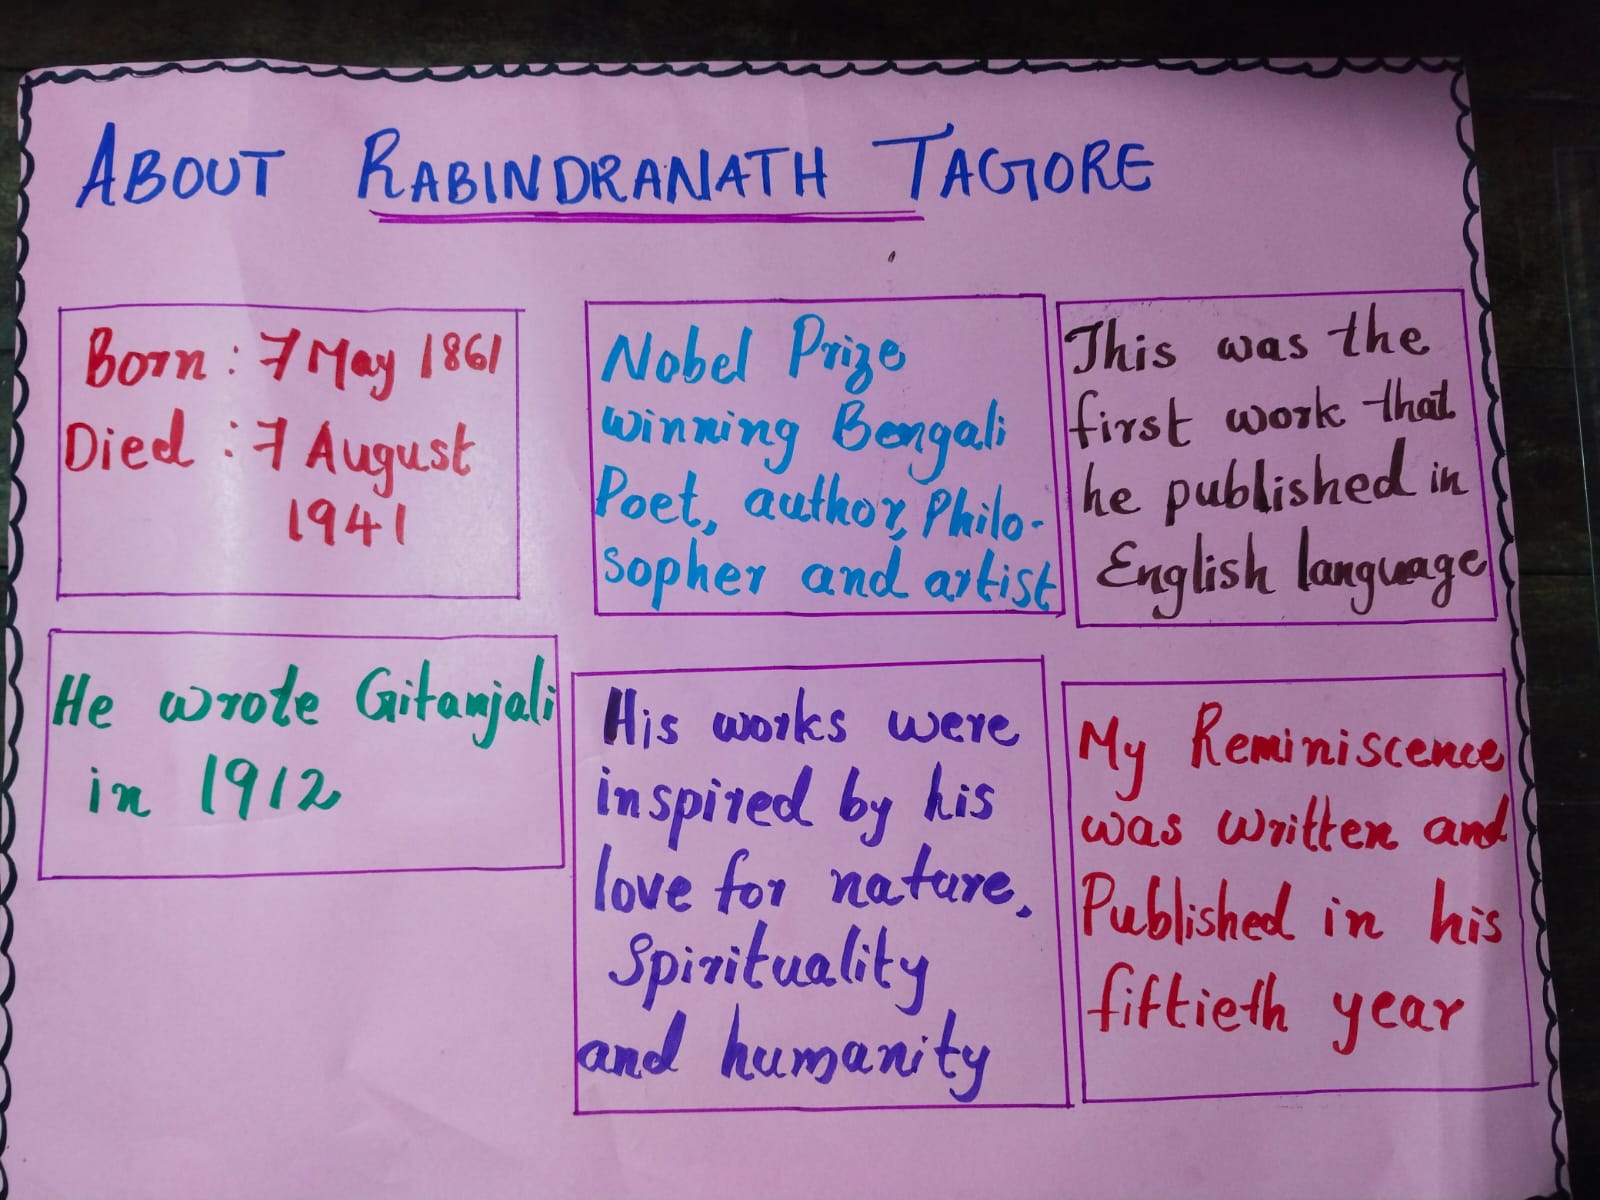 ABOUT RABINDRANATH TAGORE
Born : 7 May 1861
Died : 7 August
1941
Nobel Prize
winning Bengali
Poet, author, Philo-
sopher and artist
This was the
first work that
he published in
English language
He wrote Gitanjali
in 1912
His works were
inspired by his
love for nature,
Spirituality
and humanity
My Reminiscence
was written and
Published in his
fiftieth year